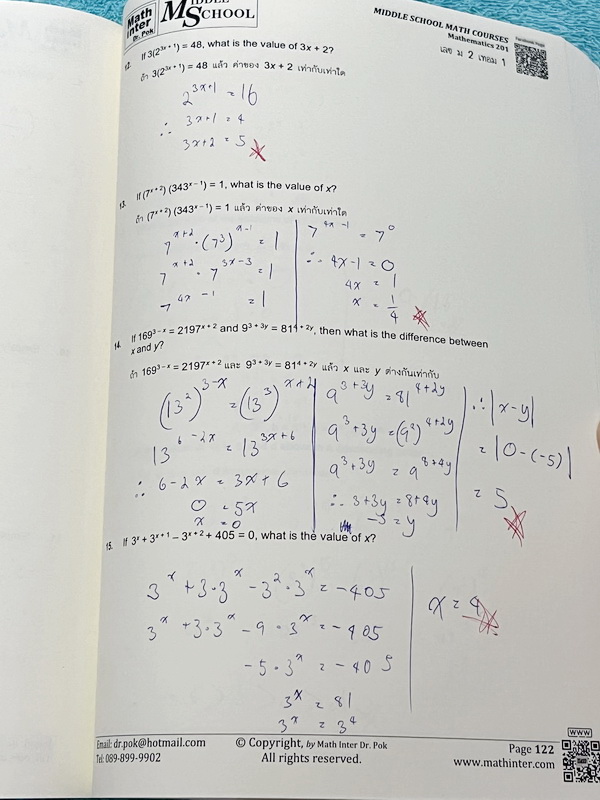 Math Inter Dr. Pok
MIDDLE SCHOOL
MIDDLE SCHOOL MATH COURSES
Mathematics 201
เลข ม 2 เทอม 1
12. If 3(2³ˣ⁺¹) = 48, what is the value of 3x + 2?
ถ้า 3(2³ˣ⁺¹) = 48 แล้ว ค่าของ 3x + 2 เท่ากับเท่าใด
2³ˣ⁺¹ = 16
∴ 3x+1 = 4
3x+2 = 5
13. If (7ˣ⁺²) (343ˣ⁻¹) = 1, what is the value of x?
ถ้า (7ˣ⁺²) (343ˣ⁻¹) = 1 แล้ว ค่าของ x เท่ากับเท่าใด
7ˣ⁺² · (7³)ˣ⁻¹ = 1
7ˣ⁺² · 7³ˣ⁻³ = 1
7⁴ˣ⁻¹ = 1
7⁴ˣ⁻¹ = 7⁰
∴ 4x-1 = 0
4x = 1
x = 1/4
14. If 169³⁻ˣ = 2197ˣ⁺² and 9³⁺³ʸ = 81⁴⁺²ʸ, then what is the difference between
x and y?
ถ้า 169³⁻ˣ = 2197ˣ⁺² และ 9³⁺³ʸ = 81⁴⁺²ʸ แล้ว x และ y ต่างกันเท่ากับ
(13²)³⁻ˣ = (13³)ˣ⁺²
13⁶⁻²ˣ = 13³ˣ⁺⁶
∴ 6-2x = 3x+6
0 = 5x
x = 0
9³⁺³ʸ = 81⁴⁺²ʸ
9³⁺³ʸ = (9²)⁴⁺²ʸ
9³⁺³ʸ = 9⁸⁺⁴ʸ
∴ 3+3y = 8+4y
-5 = y
∴ |x-y|
= |0-(-5)|
= 5
15. If 3ˣ + 3ˣ⁺¹ – 3ˣ⁺² + 405 = 0, what is the value of x?
3ˣ + 3·3ˣ - 3²·3ˣ = -405
3ˣ + 3·3ˣ - 9·3ˣ = -405
-5·3ˣ = -405
3ˣ = 81
3ˣ = 3⁴
x = 4
Email: dr.pok@hotmail.com
Tel: 089-899-9902
© Copyright, by Math Inter Dr. Pok
All rights reserved.
Page 122
www.mathinter.com
WWW